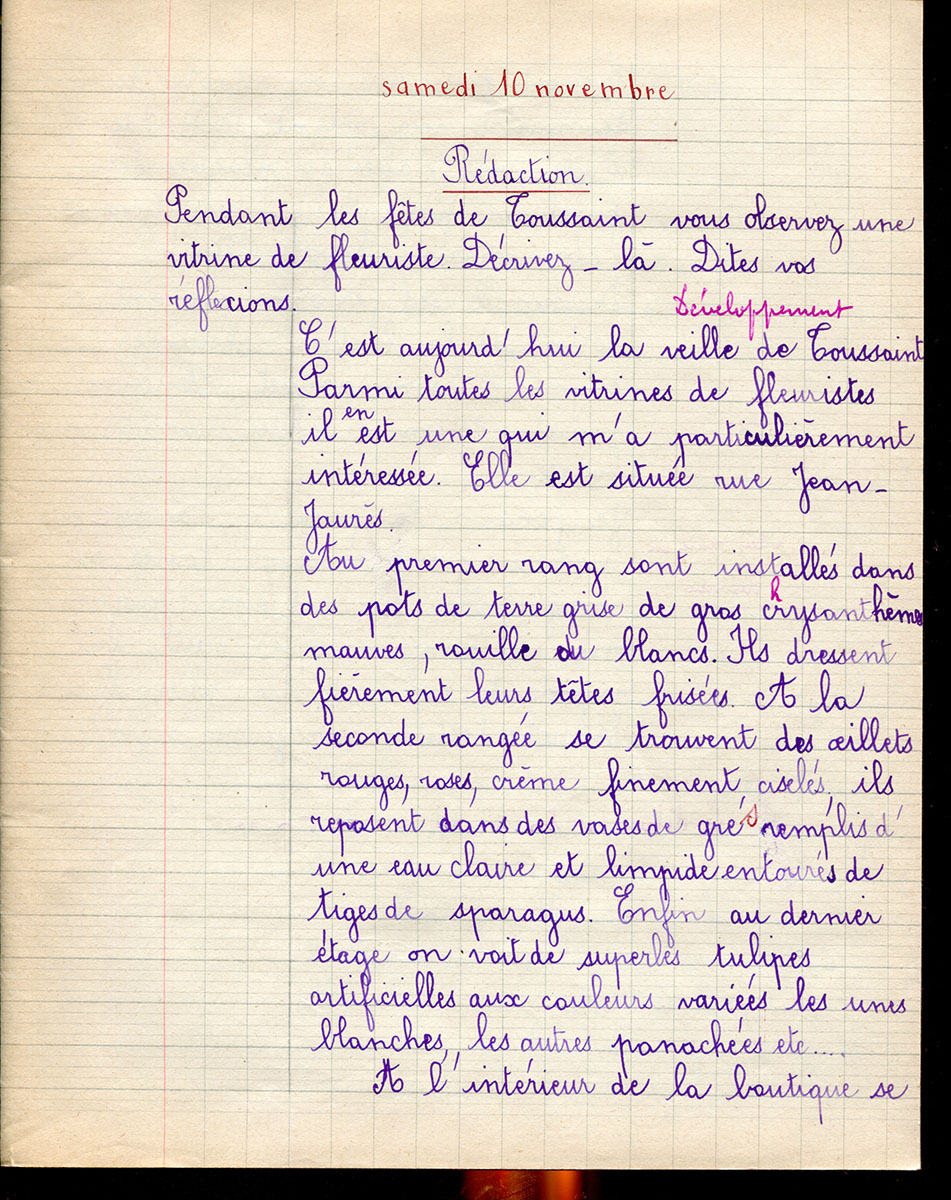 samedi 10 novembre
Rédaction.
Pendant les fêtes de Toussaint vous observez une
vitrine de fleuriste. Décrivez-là. Dites vos
réflecions.
Développement
C'est aujourd'hui la veille de Toussaint
Parmi toutes les vitrines de fleuristes
il en est une qui m'a particulièrement
intéressée. Elle est située rue Jean-
Jaurès.
Au premier rang sont installés dans
des pots de terre grise de gros chrysanthèmes
mauves, rouille ou blancs. Ils dressent
fièrement leurs têtes frisées. A la
seconde rangée se trouvent des œillets
rouges, roses, crème finement ciselés, ils
reposent dans des vases de grés remplis d'
une eau claire et limpide entourés de
tiges de sparagus. Enfin au dernier
étage on voit de superbes tulipes
artificielles aux couleurs variées les unes
blanches, les autres panachées etc....
A l'intérieur de la boutique se